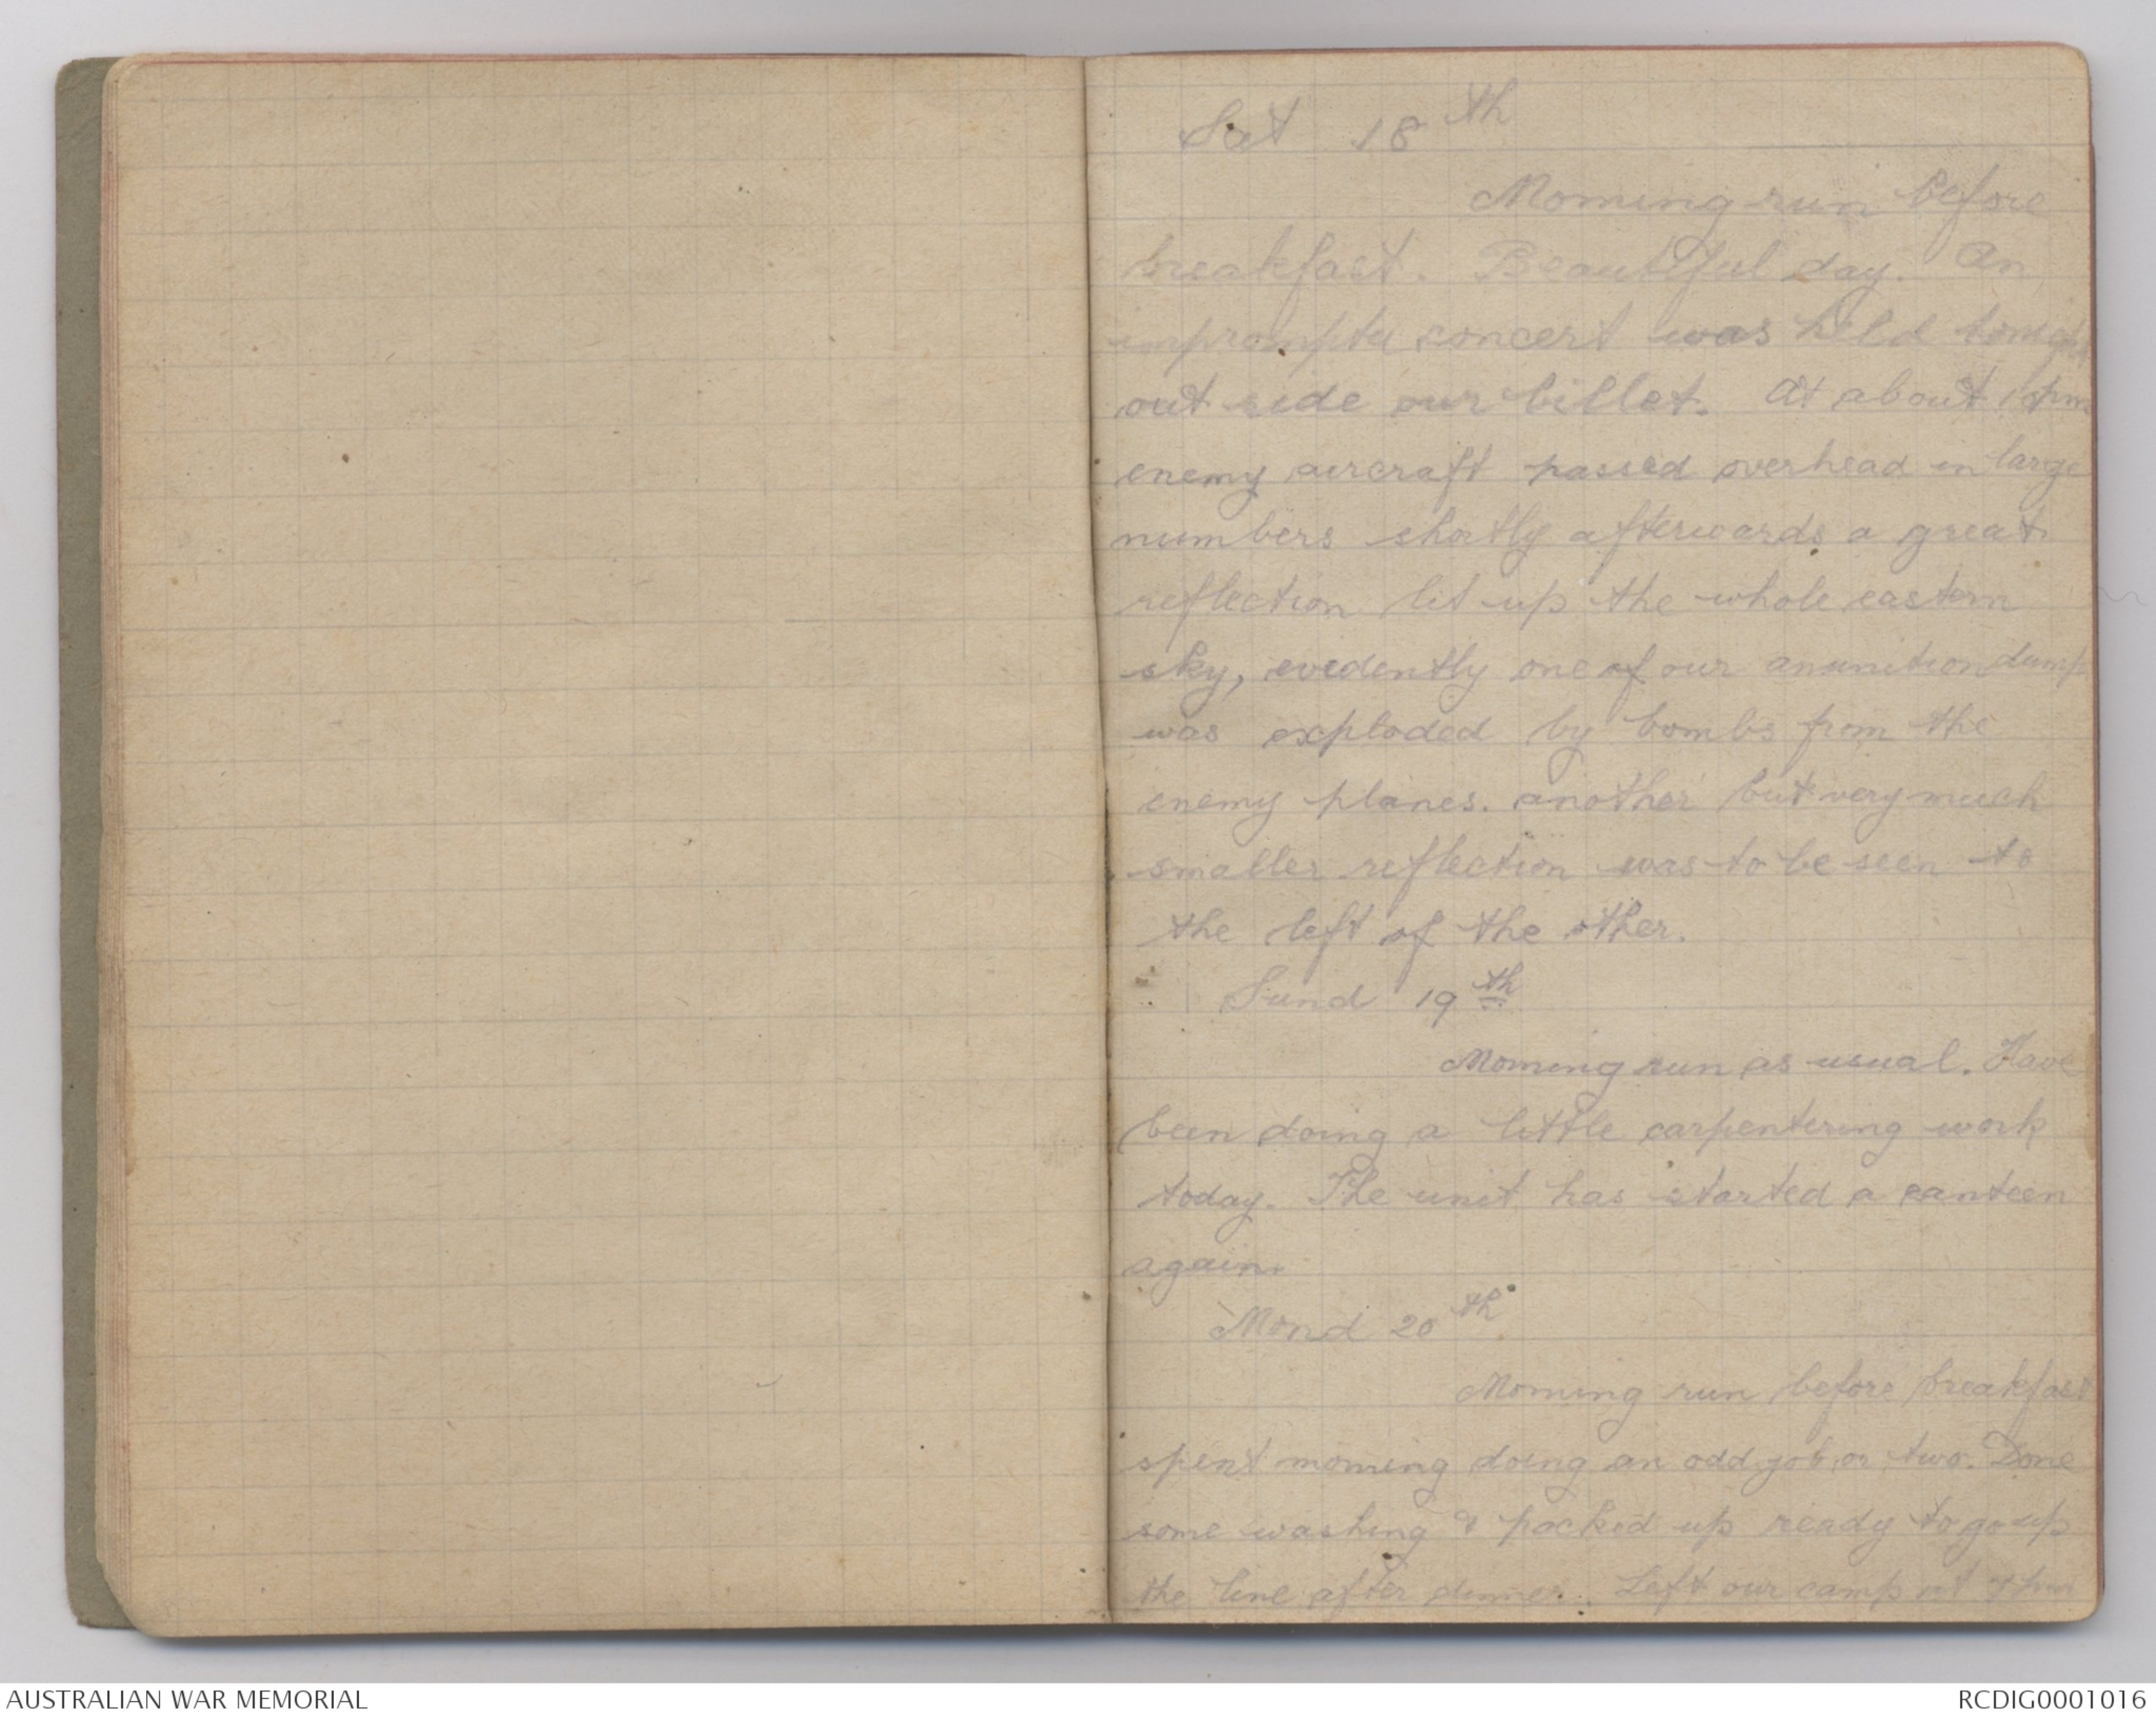 Sat 18th
Morning run before
breakfast. Beautiful day. An
impromptu concert was held tonight
out side our billet. At about
enemy aircraft passed overhead in large
numbers shortly afterwards a great
reflection lit up the whole eastern
sky, evidently one of our anunition dump
was exploded by bombs from the
enemy planes. another but very much
smaller reflection was to be seen to
the left of the other.
Sund 19th
Morning run as usual. Have
been doing a little carpentering work
today. The unit has started a canteen
again.
Mond 20th
Morning run before breakfast
spent morning doing an odd job or two. Done
some washing & packed up ready to go up
the line after dinner. Left our camp at
AUSTRALIAN WAR MEMORIAL
RCDIG0001016